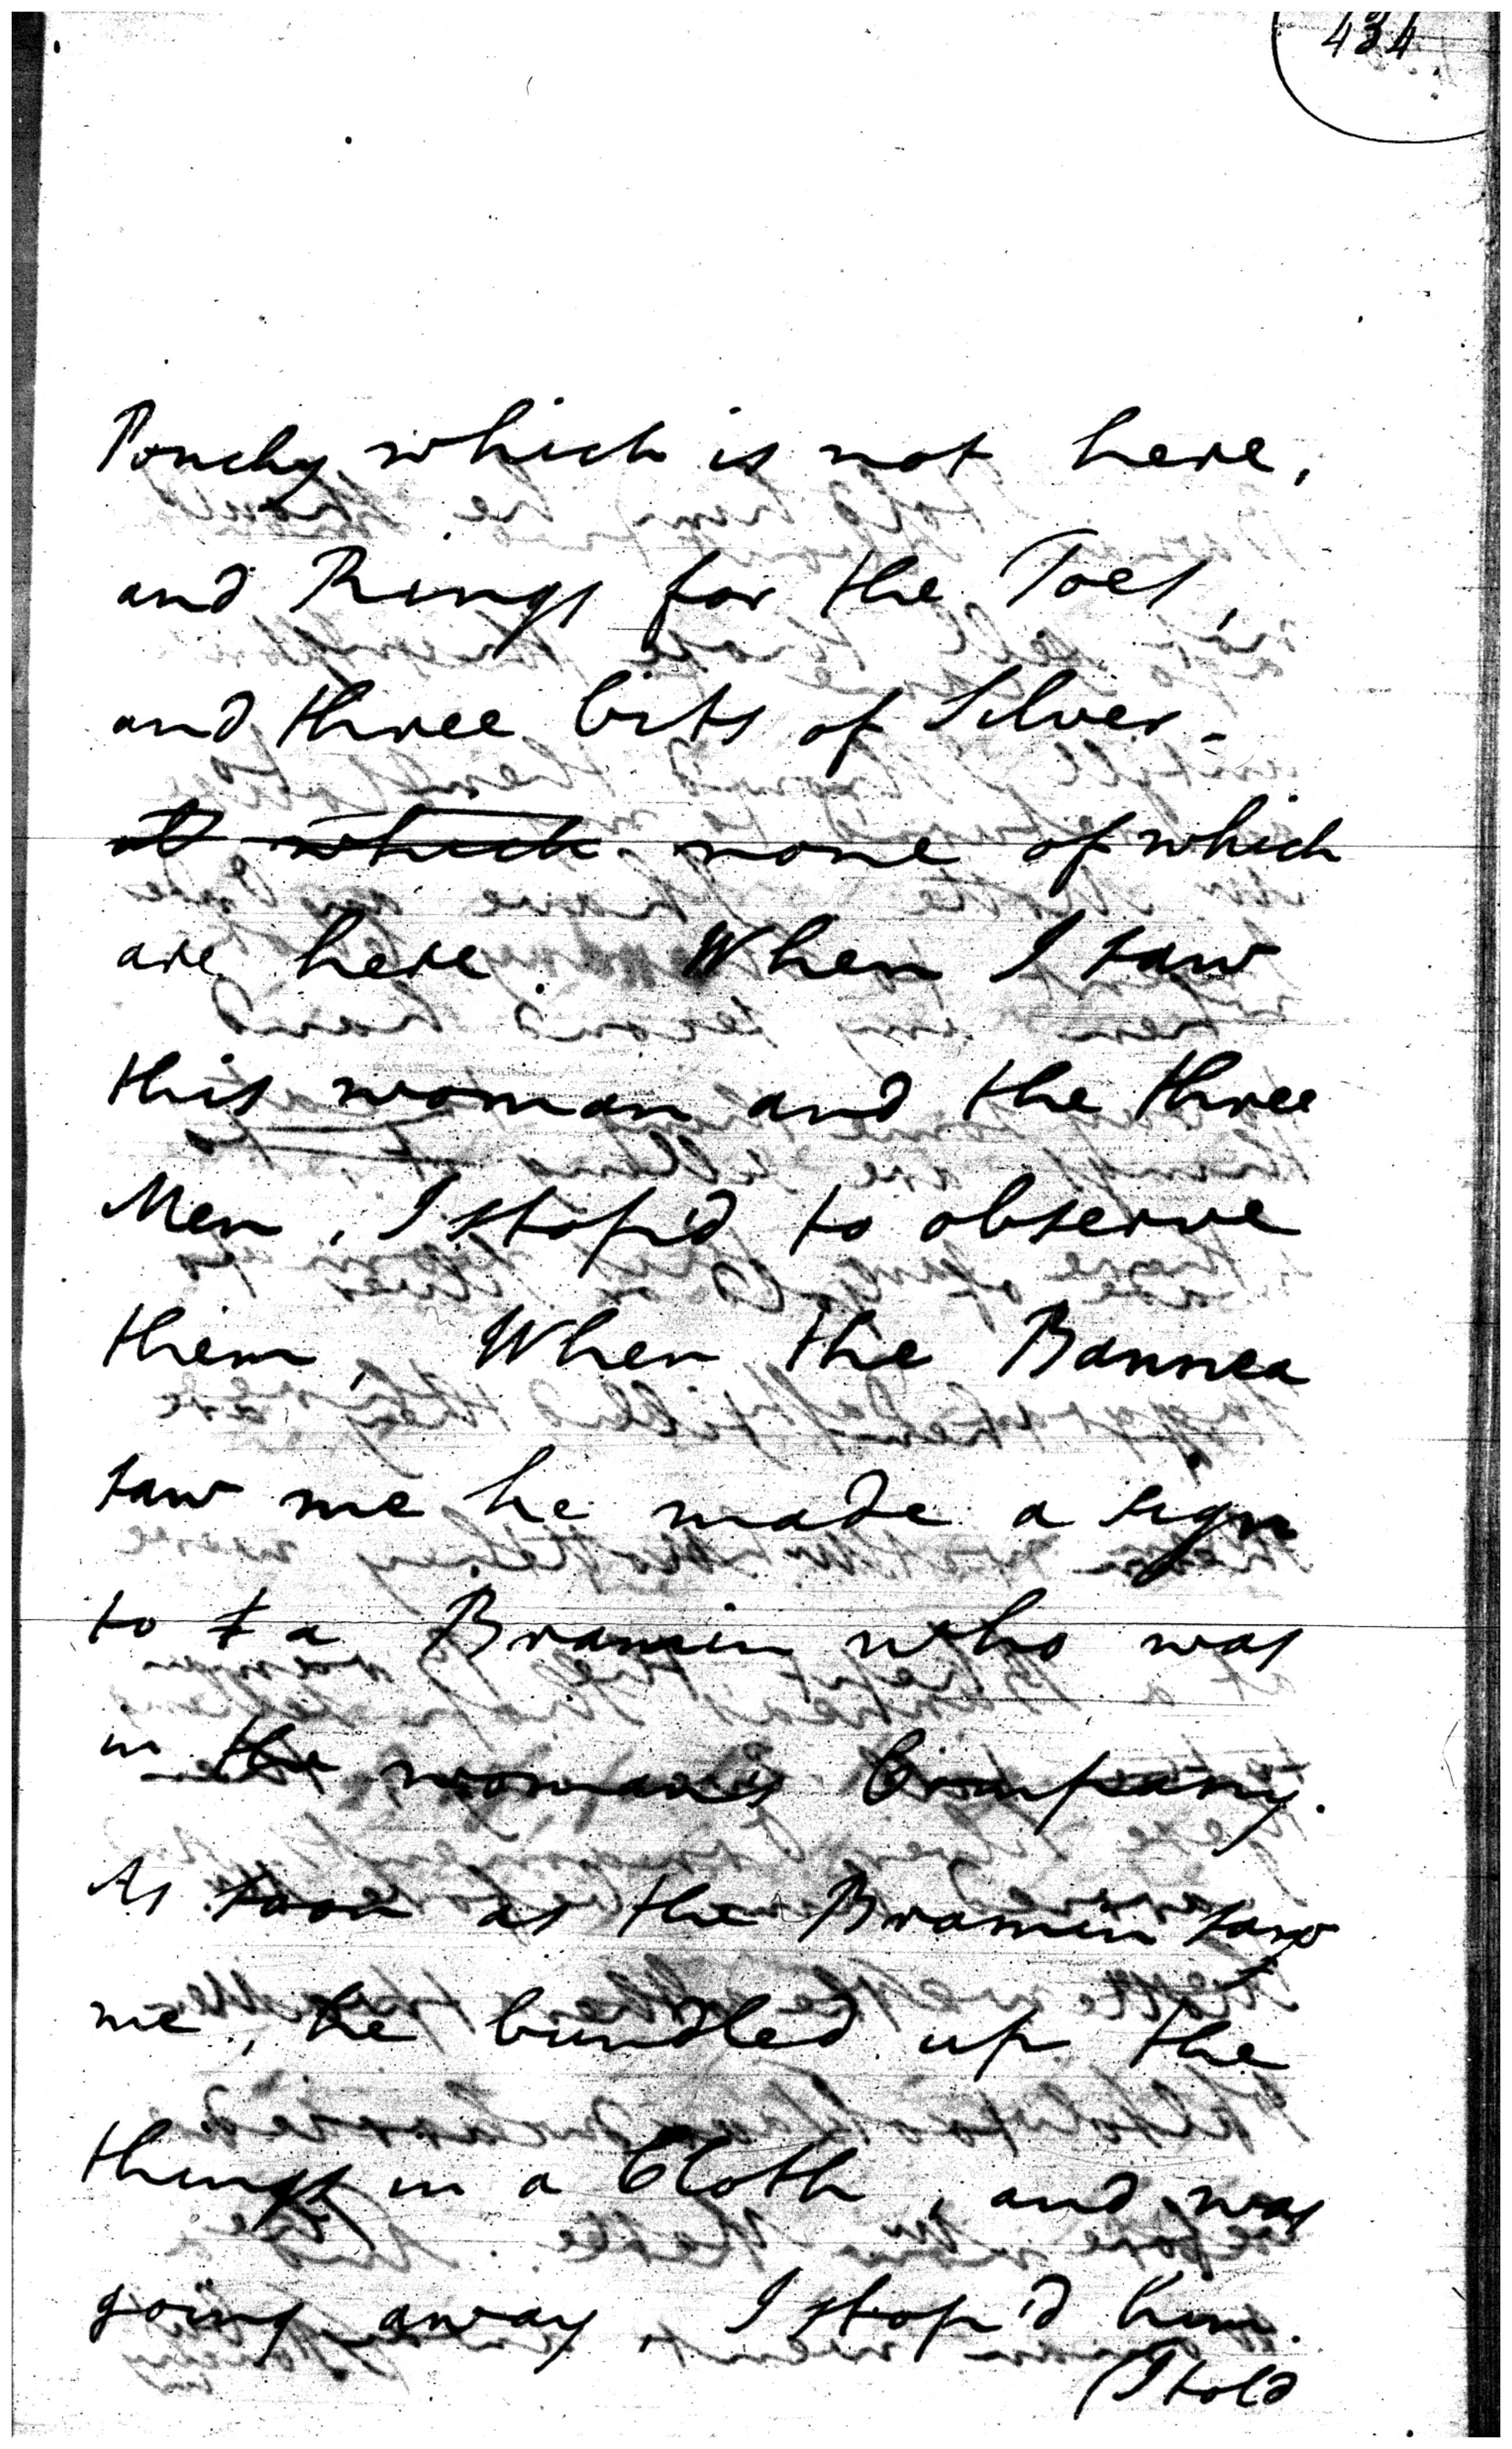 434
Ponchy which is not here,
and Rings for the Toes,
and three bits of Silver -
at which none of which
are here. When I saw
this woman and the three
Men, I stop'd to observe
them, When the Bannea
saw me he made a sign
to t a Bramin who was
in the woman's Company.
As soon as the Bramin saw
me, he bundled up the
things in a Cloth, and was
going away, I stop'd him.
(I told